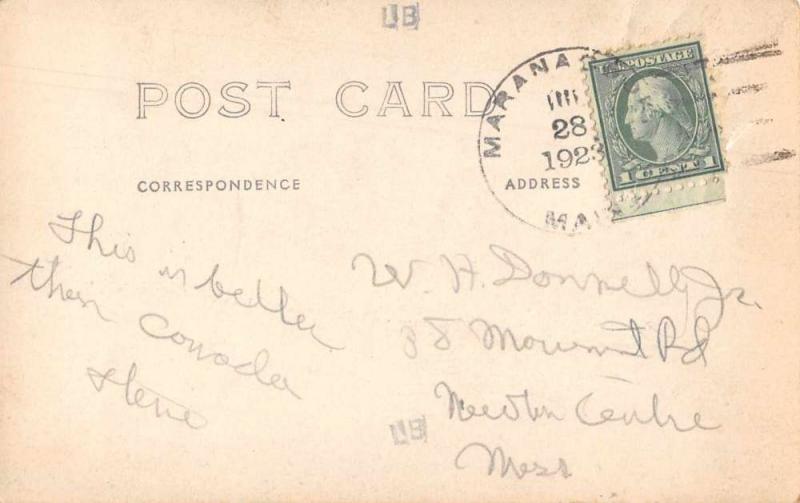 LB
POST CARD
MARANA
28
1923
MAI
U.S. POSTAGE
1 CENT 1
CORRESPONDENCE
ADDRESS
This is better
then Canada
Steve
W. H. Donnelly Jr.
38 Monument Rd
Newton Centre
Mass
LB